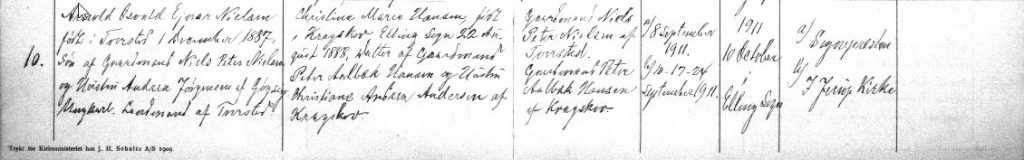 10.
Arnold Osvald Ejnar Nielsen
født i Tversted 1 December 1887.
Søn af Gaardmand Niels Peter Nielsen
og Hustru Andrea Jørgensen af
Ungkarl. Landmand af Tversted
Christine Marie Hansen, født
i Kragskov, Elling Sogn 22 Au-
gust 1888, Datter af Gaardmand
Peter Aalbæk Hansen og Hustru
Christiane Andrea Andersen af
Kragskov
Gaardmand Niels
Peter Nielsen af
Tversted.
Gaardmand Peter
Aalbæk Hansen
af Kragskov
a/ 8 September
1911.
b/ 10-17-24
September 1911.
1911
10 Oktober
i
Elling Sogn
a/ Sognepræsten
b/
I Jerup Kirke
Trykt for Kirkeministeriet hos J. H. Schultz A/S 1909.